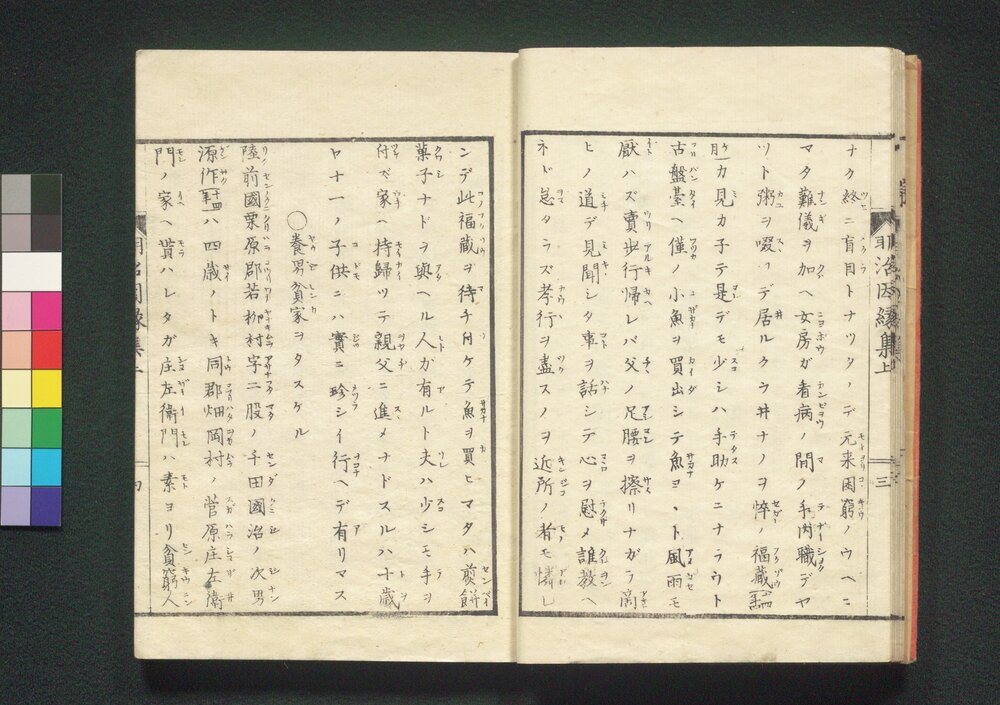 明治因縁集 上
三
ナク終ニ盲目トナツタノデ元来困窮ノウヘニ
マタ難儀ヲ加ヘ女房ガ看病ノ間ノ手内職デヤ
ツト粥ヲ啜ツテ居ルクウ井ナノヲ悴ノ福蔵
カ見カ子テ是デモ少シハ手助ケニナラウト
古盤臺ヘ僅ノ小魚ヲ買出シテ魚ヨ丶ト風雨モ
厭ハズ賣歩行帰レバ父ノ足腰ヲ擦リナガラ
ヒノ道デ見聞シタ事ヲ話シテ心ヲ慰メ誰教ヘ
ネド怠タラズ孝行ヲ盡スノヲ近所ノ者モ憐レ
ンデ此福蔵ヲ待チ付ケテ魚ヲ買ヒマタハ煎餅
菓子ナドヲ與ヘル人ガ有ルト夫ハ少シモ手ヲ
付ズ家ヘ持歸ツテ親父ニ進メナドスルハ十歳
ロナ一ノ子供ニハ實ニ珍シイ行ヘデ有リマス
○養男貧家ヲタスケル
陸前國栗原郡若柳村字二股ノ千田國治ノ次男
源作ハ四歳ノトキ同郡畑岡村ノ菅原庄左衛
門ノ家ヘ貰ハレタガ庄左衛門ハ素ヨリ貧窮人